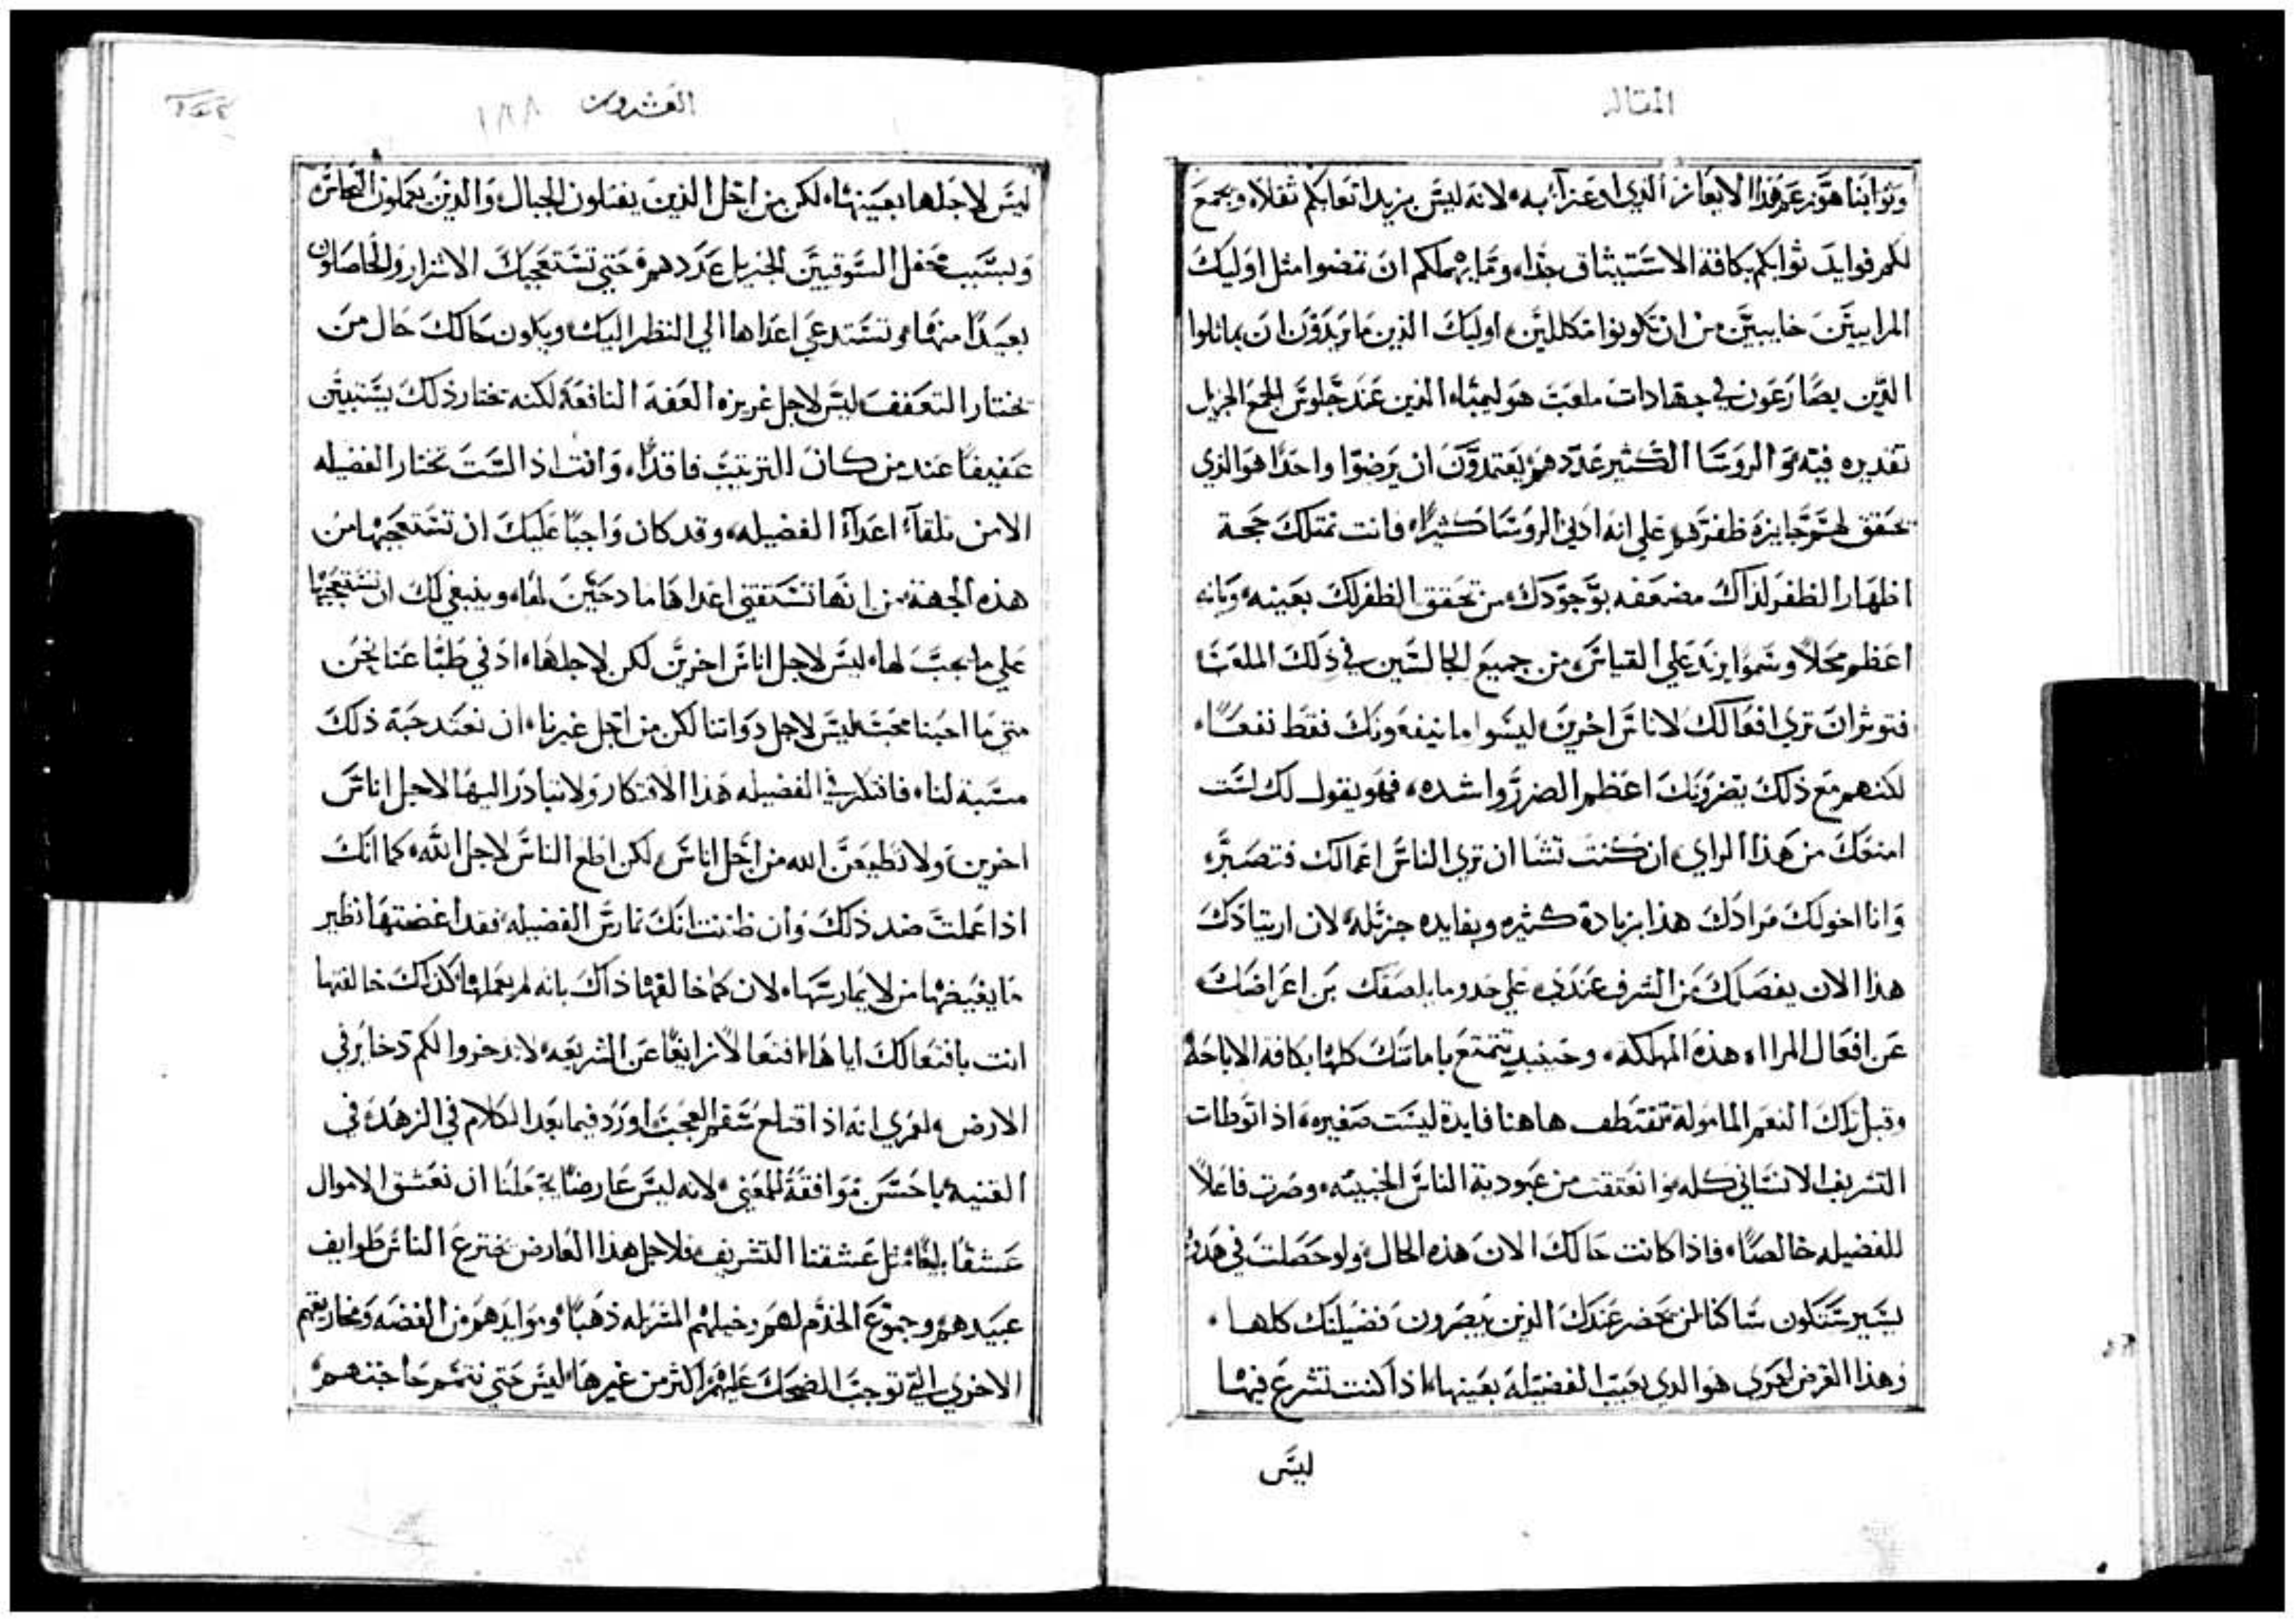 المقاله
وثوابنا هو زعم هذا الايعاز الذي اوعز اليه لانه ليس يزيد اتعابكم ثقلا ويجمع
لكم فوايد ثوابكم بكافة الاستيثاق جدا وما يهملكم ان تمضوا مثل اوليك
المراييين خايبين من ان تكونوا مكللين اوليك الذين ما يريدون ان يماثلوا
الذين يصارعون في جهادات ملعب هوليمبيا الذين عند جلوس الجمع الجزيل
تقديره فيه والروسا الكثير عددهم يعتمدون ان يرضوا واحدا هو الذي
يحقق لهم جايزة ظفرهم علي انه ادني الروسا كثيرا فانت تمتلك حجة
اظهار الظفر لذاك مضعفه بوجودك من تحقق الظفر لك بعينه وبانه
اعظم محلا وسموا يزيد علي القياس من جميع الجالسين في ذلك الملعب
فتوثر ان تري افعالك لاناس اخرين ليسوا ما ينفعونك فقط نفعا
لكنهم مع ذلك يضرونك اعظم الضرر واشده فهو يقول لك لست
امنعك من هذا الراي ان كنت تشا ان تري الناس اعمالك فتصبر
وانا اخولك مرادك هذا بزيادة كثيره وبفايده جزيله لان ارتيادك
هذا الان يفصلك من الشرف عندي علي حدو ما يلصقك بي اعراضك
عن افعال المراااه هذه المهلكه وحينيذ تتمتع باماتك كلها بكافة الاباحة
وقبل تلك النعم المامولة تقتطف هاهنا فايدة ليست صغيره اذا توطات
التشريف الانساني كله وانعتقت من عبودية الناس الخبيثه وصرت فاعلا
للفضيله خالصا فاذا كانت حالك الان هذه الحال ولو حصلت في هدو
يسير ستكون ساكنا لمن يحضر عندك الذين يبصرون فضيلتك كلها
وهذا الغرض لعمري هو الذي يعيب الفضيلة بعينها اذا كنت تشرع فيها
ليس
العشرون
١٨٨
ليس لاجلها بعينها لكن من اجل الذين يفتلون الحبال والذين يعملون النحاس
وبسبب محفل السوقيين الجزيل عددهم حتي تستعجبك الاشرار والحاصلون
بعيدا منها وتستدعي اعداها الي النظر اليك ويكون حالك حال من
يختار التعفف ليس لاجل غريزه العفه النافعة لكنه يختار ذلك يستبين
عفيفا عند من كان الترتيب فاقدا وانت اذا لست تختار الفضيله
الا من تلقآء اعدآء الفضيله وقد كان واجبا عليك ان تستعجبها من
هذه الجهة من انها تستقتني اعداها مادحين لها وينبغي لك ان تستعجبها
علي ما يجب لها ليس لاجل اناس اخرين لكن لاجلها اذ في طبا عنا نحن
متي ما احبنا محب ليس لاجل دواتنا لكن من اجل غيرنا ان نعتد حبة ذلك
مسبة لنا فافتكر في الفضيله هذا الافتكار ولا تبادر اليها لاجل اناس
اخرين ولا تطيعن الله من اجل اناس لكن اطع الناس لاجل الله كما انك
اذا عملت ضد ذلك وان ظننت انك تمارس الفضيله فقد اغضتها نظير
ما يغيضها من لا يمارسها لان كما خالفها ذاك بانه لم يعملها كذلك خالفتها
انت بافتعالك اياها افتعالا زايغا عن الشريعه لا تدخروا لكم ذخاير في
الارض ولعمري انه اذا اقتلع سقم العجب اورد فيما بعد الكلام في الزهد في
القنيه باحسن موافقة للمعني لانه ليس عارضا يجعلنا ان نعشق الاموال
عشقا بليغا مثل عشقنا التشريف فلاجل هذا العارض يخترع الناس طوايف
عبيدهم وجموع الخدم لهم وخيلهم المسربله ذهبا وموايدهم من الفضه ومخاريقهم
الاخري التي توجب الضحك عليهم اكثر من غيرها ليس حتي تتمم حاجتهم